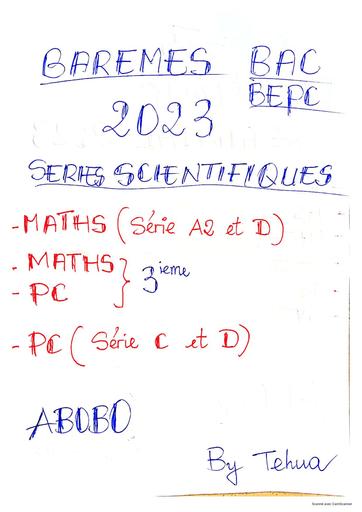 BAREMES BAC
BEPC
2023
SERIES SCIENTIFIQUES
- MATHS (Série A2 et D)
- MATHS
- PC
} 3ieme
- PC (Série C et D)
ABOBO
By Tehua
Scanné avec CamScanner